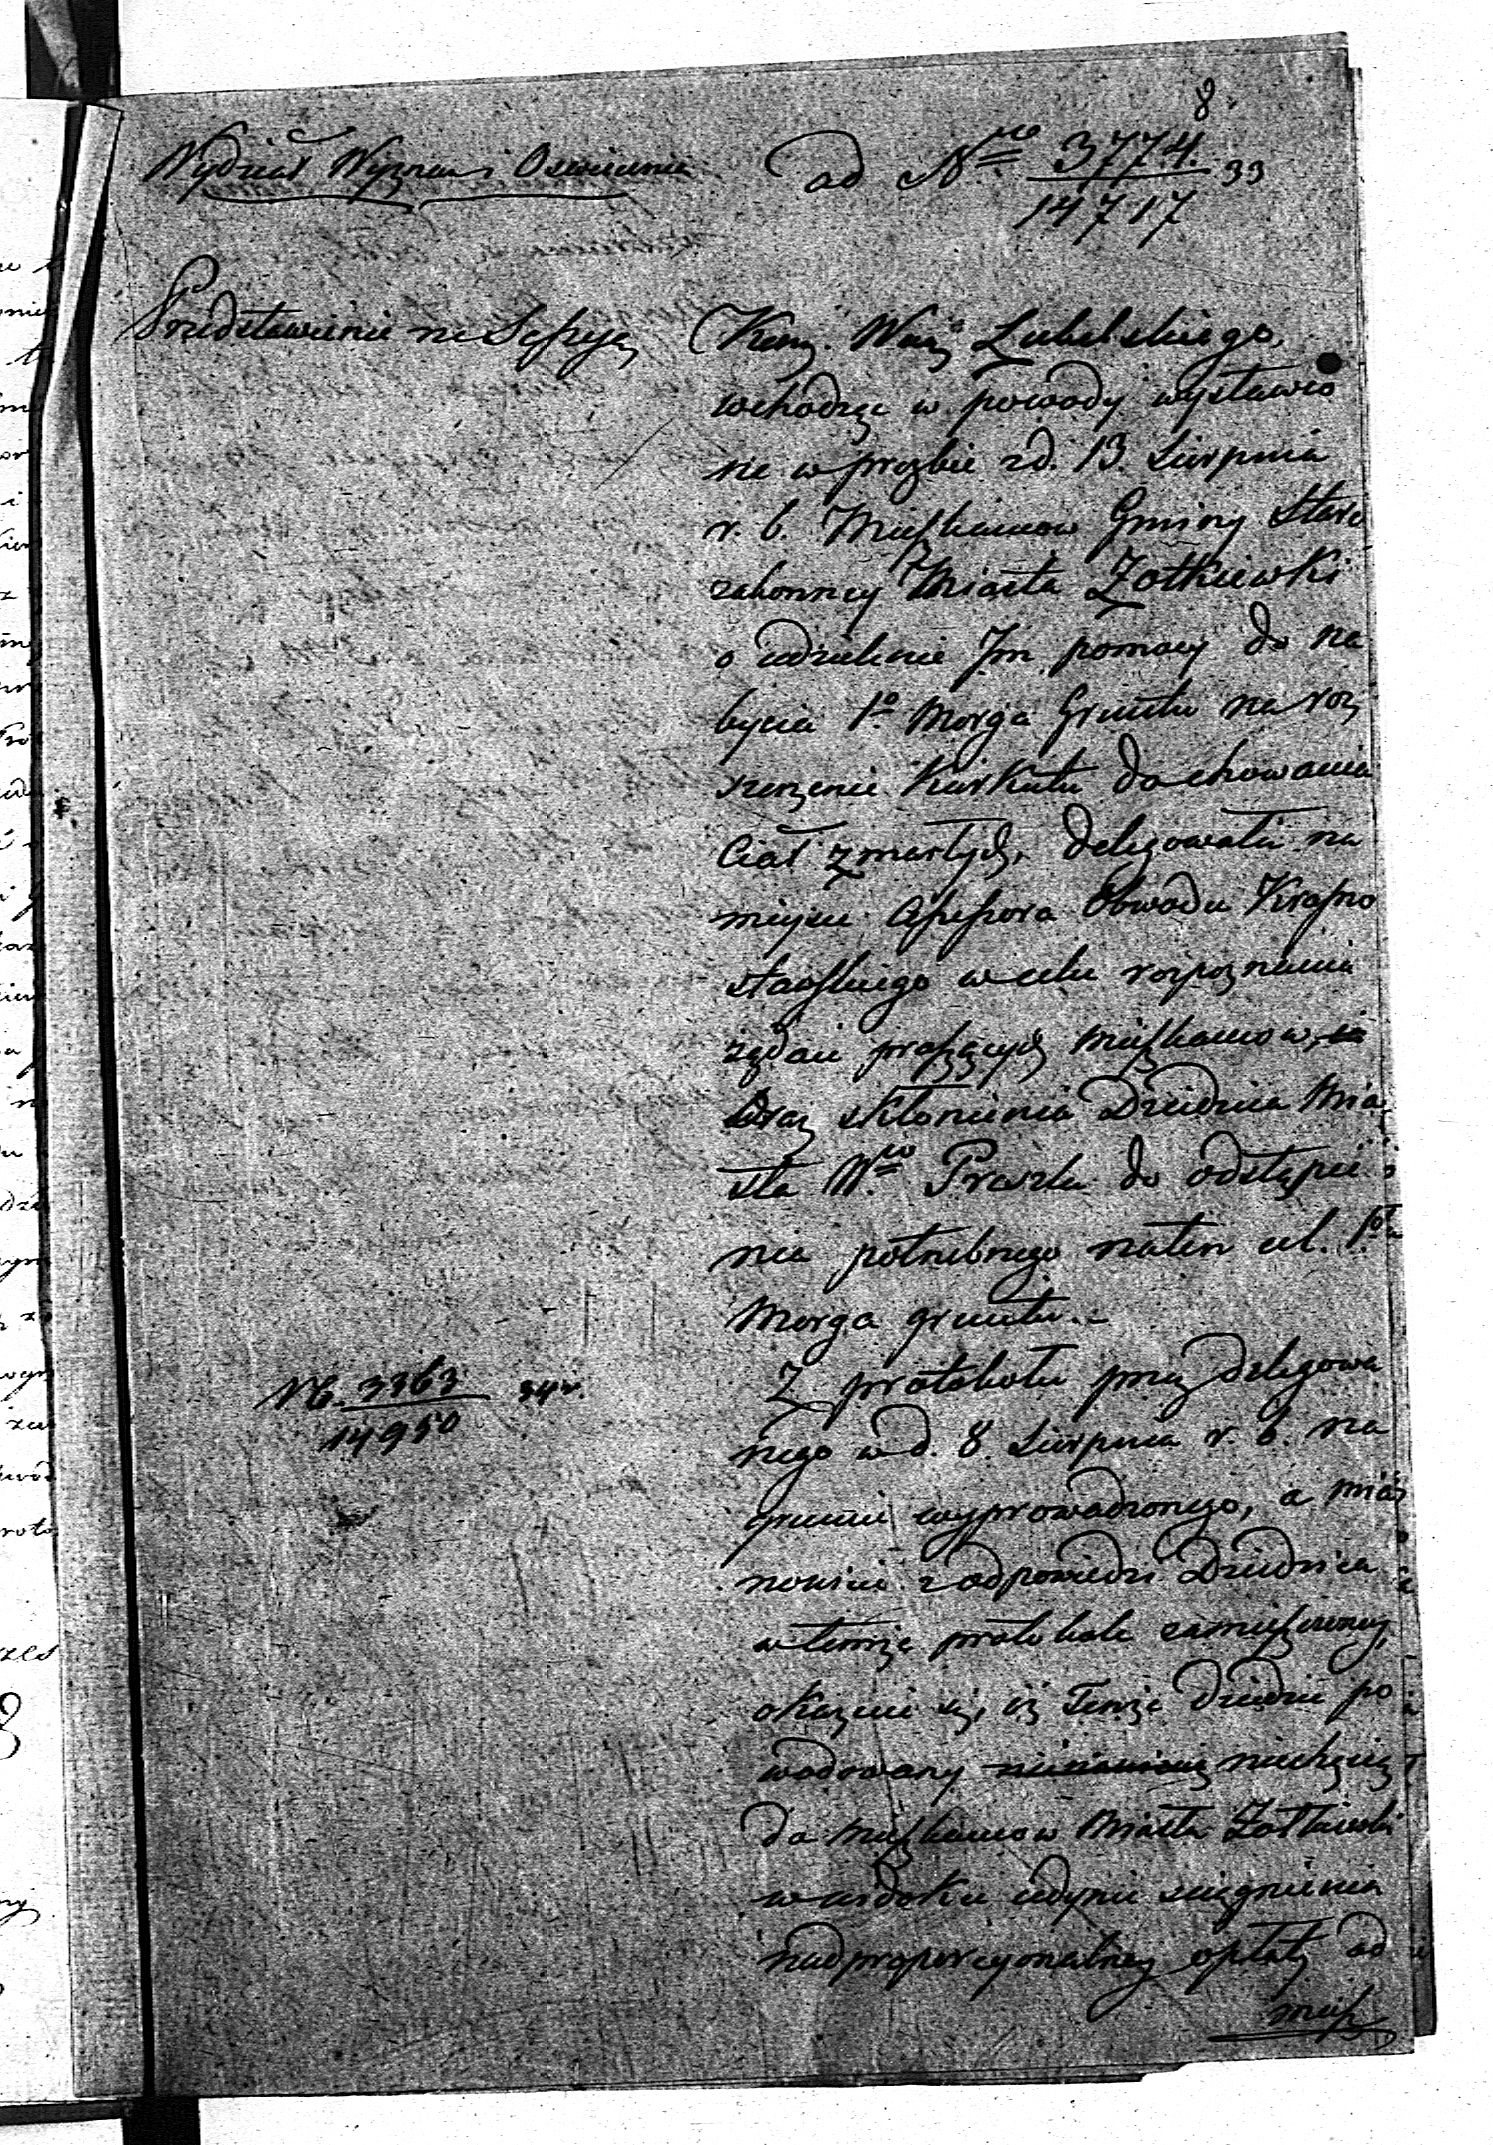 8.
Wydział Wyznań i Oświecenia
ad Nro 3774./14717 33
Przedstawienie na Sessyą
Kom. Woj. Lubelskiego,
wchodząc w powody wystawio
ne w prozbie z d. 13. Sierpnia
r. b. Mieszkancow Gminy Staro
zakonney Miasta Zołkiewki
o udzielenie Im pomocy do na
bycia 1o Morga Gruntu na roz
szerzenie Kirkutu do chowania
Ciał zmarłych, delegowała na
miejsce Assessora Obwodu Krasno
stawskiego w celu rozpoznania
żądań proszących mieszkancow,
Oraz skłonienia Dziedzica Mia
sta Wgo Prószka do odstąpie
nia potrzebnego na ten cel. 1go
Morga gruntu.-
N 6. 3363/14950 34 r.
Z protokołu przez delegowa
nego w d. 8. Sierpnia r. b. na
gruncie wyprowadzonego, a mia
nowicie z odpowiedzi Dziedzica
w temże protokole zamieszczoney,
okazuie się, iż Tenże Dziedzic po
wodowany niechęcią
do mieszkancow Miasta Zołkiewki
w widoku iedynie sciągnienia
nadproporcyonalney opłaty od
miesz